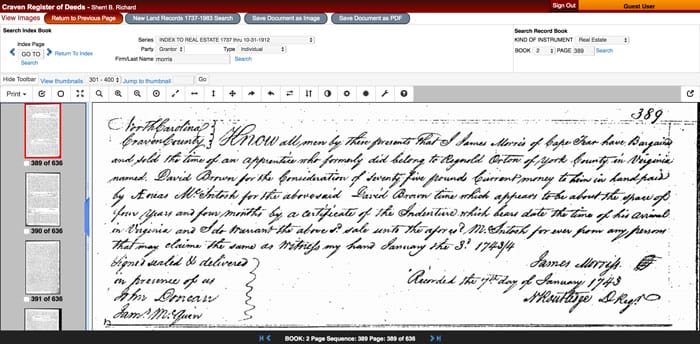 Craven Register of Deeds - Sherri B. Richard
Sign Out
Guest User
View Images
Return to Previous Page
New Land Records 1737-1983 Search
Save Document as Image
Save Document as PDF
Search Index Book
Index Page
GO TO
Search
Return To Index
Series INDEX TO REAL ESTATE 1737 thru 10-31-1912
Party Grantor Type Individual
Firm/Last Name morris
Search
Search Record Book
KIND OF INSTRUMENT Real Estate
BOOK 2 PAGE 389 Search
Hide Toolbar View thumbnails 301 - 400 Jump to thumbnail Go
Print
389 of 636
390 of 636
391 of 636
389
North Carolina
Craven County
Know all men by these presents that I James Morris of Cape Fear have Bargaind
and sold the time of an apprentice who formerly did belong to Regnold Orton of York County in Virginia
named David Brown for the Consideration of Seventy five pounds Current money to him in hand paid
by Aeneas McIntosh for the abovesaid David Brown time which appears to be about the space of
four years and four months by a certificate of the Indenture which bears date the time of his arival
in Virginia and I do Warrant the above sd sale unto the afores'd McIntosh for ever from any persons
that may claime the same as Witness my hand January the 3d 1743/4
Signed sealed & delivered
in presence of us
John Doncan
Jams McGwen
James Morriss
Recorded the 7th day of January 1743
N Routledge D Regr
BOOK: 2 Page Sequence: 389 Page: 389 of 636